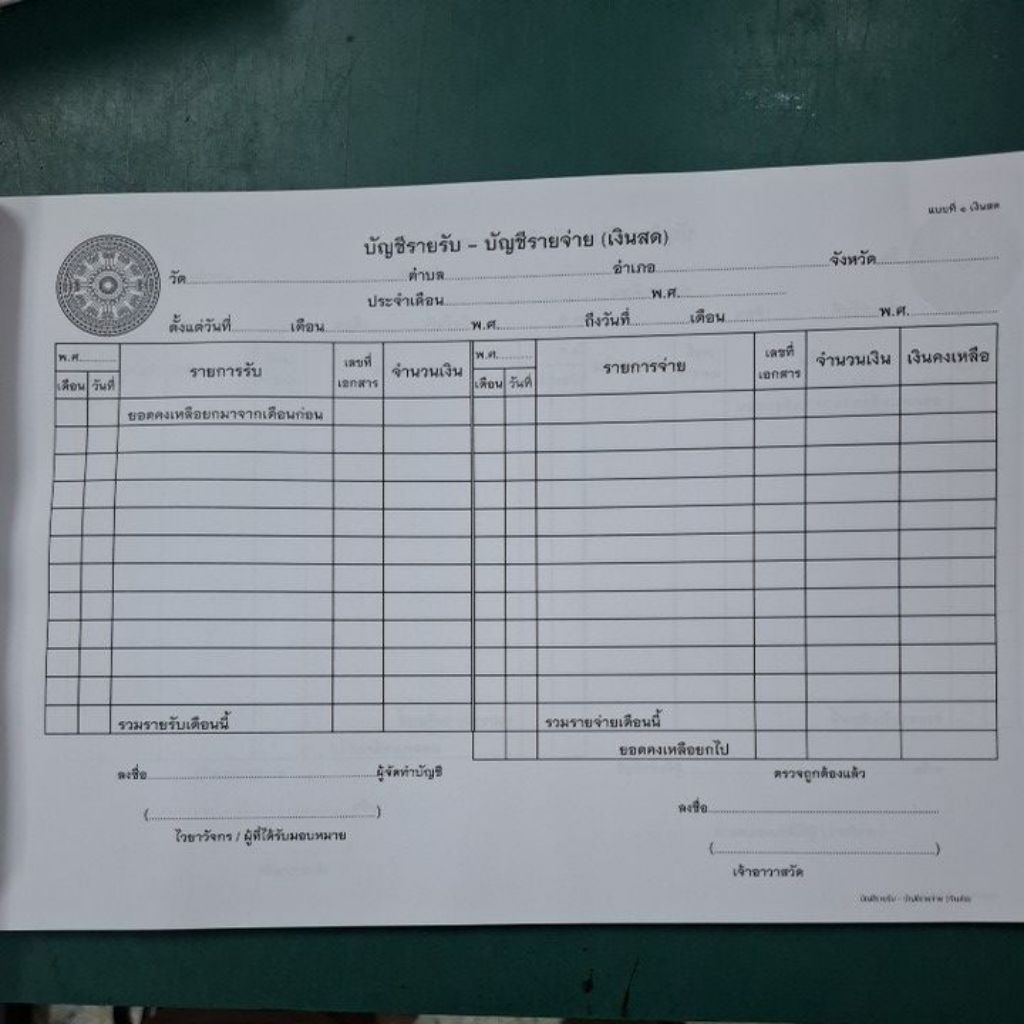 แบบที่ ๑ เงินสด
บัญชีรายรับ - บัญชีรายจ่าย (เงินสด)
วัด ตำบล อำเภอ จังหวัด
ประจำเดือน พ.ศ.
ตั้งแต่วันที่ เดือน พ.ศ. ถึงวันที่ เดือน พ.ศ.
พ.ศ. รายการรับ เลขที่เอกสาร จำนวนเงิน พ.ศ. รายการจ่าย เลขที่เอกสาร จำนวนเงิน เงินคงเหลือ
เดือน วันที่ เดือน วันที่
ยอดคงเหลือยกมาจากเดือนก่อน
รวมรายรับเดือนนี้ รวมรายจ่ายเดือนนี้
ยอดคงเหลือยกไป
ลงชื่อ ผู้จัดทำบัญชี ตรวจถูกต้องแล้ว
ลงชื่อ
( )
ไวยาวัจกร / ผู้ที่ได้รับมอบหมาย
( )
เจ้าอาวาสวัด
บัญชีรายรับ - บัญชีรายจ่าย (เงินสด)